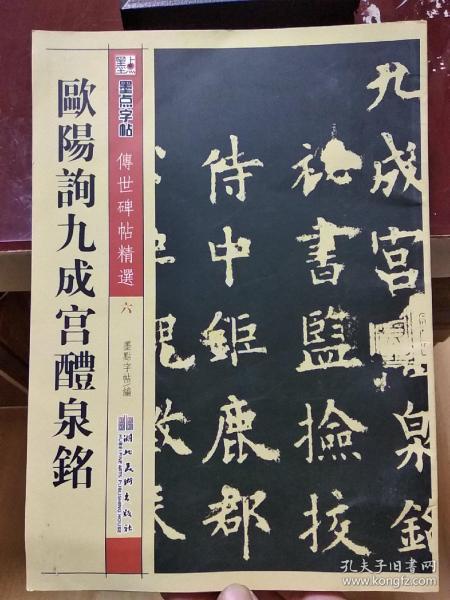 歐陽詢九成宮醴泉銘
墨点
墨点字帖
傳世碑帖精選
六
墨點字帖/編
湖北美術出版社
HUBEI FINE ARTS PUBLISHING HOUSE
九成宮醴泉銘
祕書監撿挍
侍中鉅鹿郡
孔夫子旧书网
www.kongfz.com